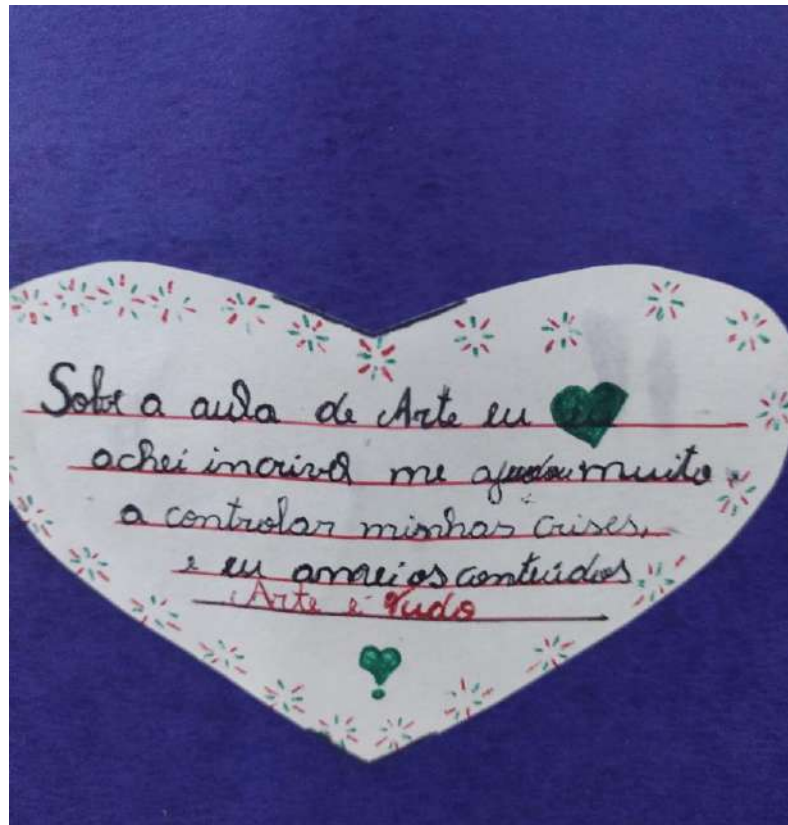 Sobre a aula de Arte eu
achei incrivel me ajudou muito
a controlar minhas crises,
e eu amei os conteúdos
Arte é tudo